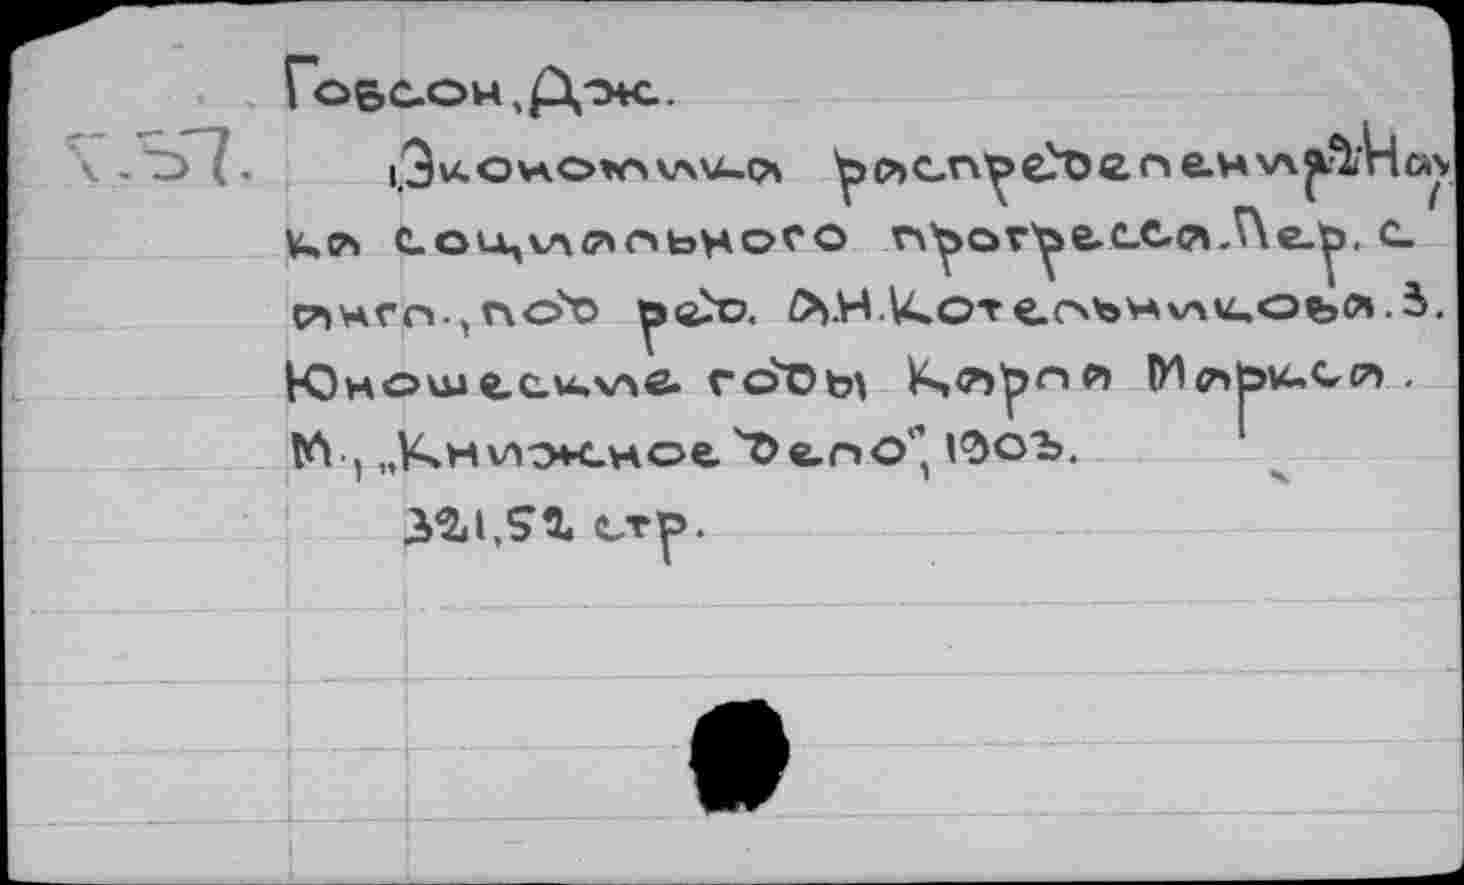 Гобсон, Дж.
V.57. 1.Экономика распределения. 2. Нау
ка социального прогресса. Пер. с
англ., под ред. А.Н. Котельникова. 3.
Юношеские годы Карла Маркса.
М., „Книжное дело", 1903.
321,52 стр.